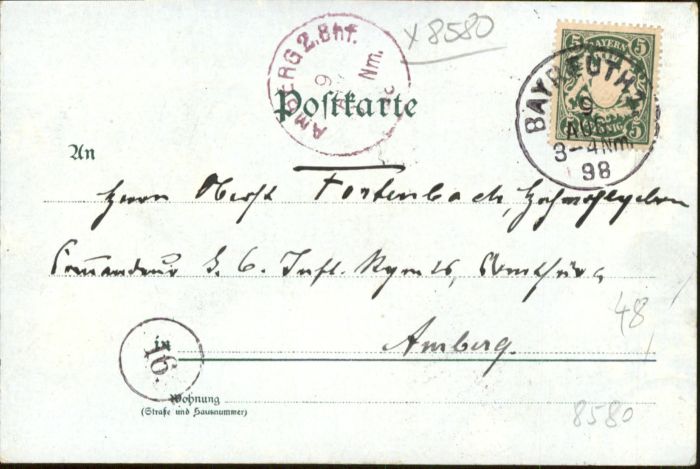 AMBERG 2.Bhf.
9
Nm.
x 8580
5 BAYERN 5
5 5
BAYREUTH 1
9
AUG
3-4Nm
98
Postkarte
An
Herrn Oberst Fortenbach,
Commandeur d. 6. Inft. Rgmts,
48
in Amberg.
16.
Wohnung
(Straße und Hausnummer)
8580